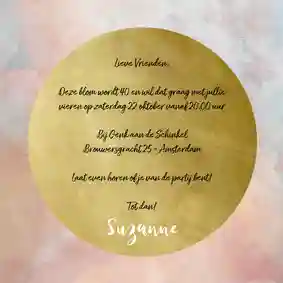 Lieve Vrienden,
Deze blom wordt 40 en wil dat graag met jullie
vieren op zaterdag 22 oktober vanaf 20.00 uur
Bij Genk aan de Schinkel
Brouwersgracht 25 - Amsterdam
Laat even horen of je van de partij bent!
Tot dan!
Suzanne